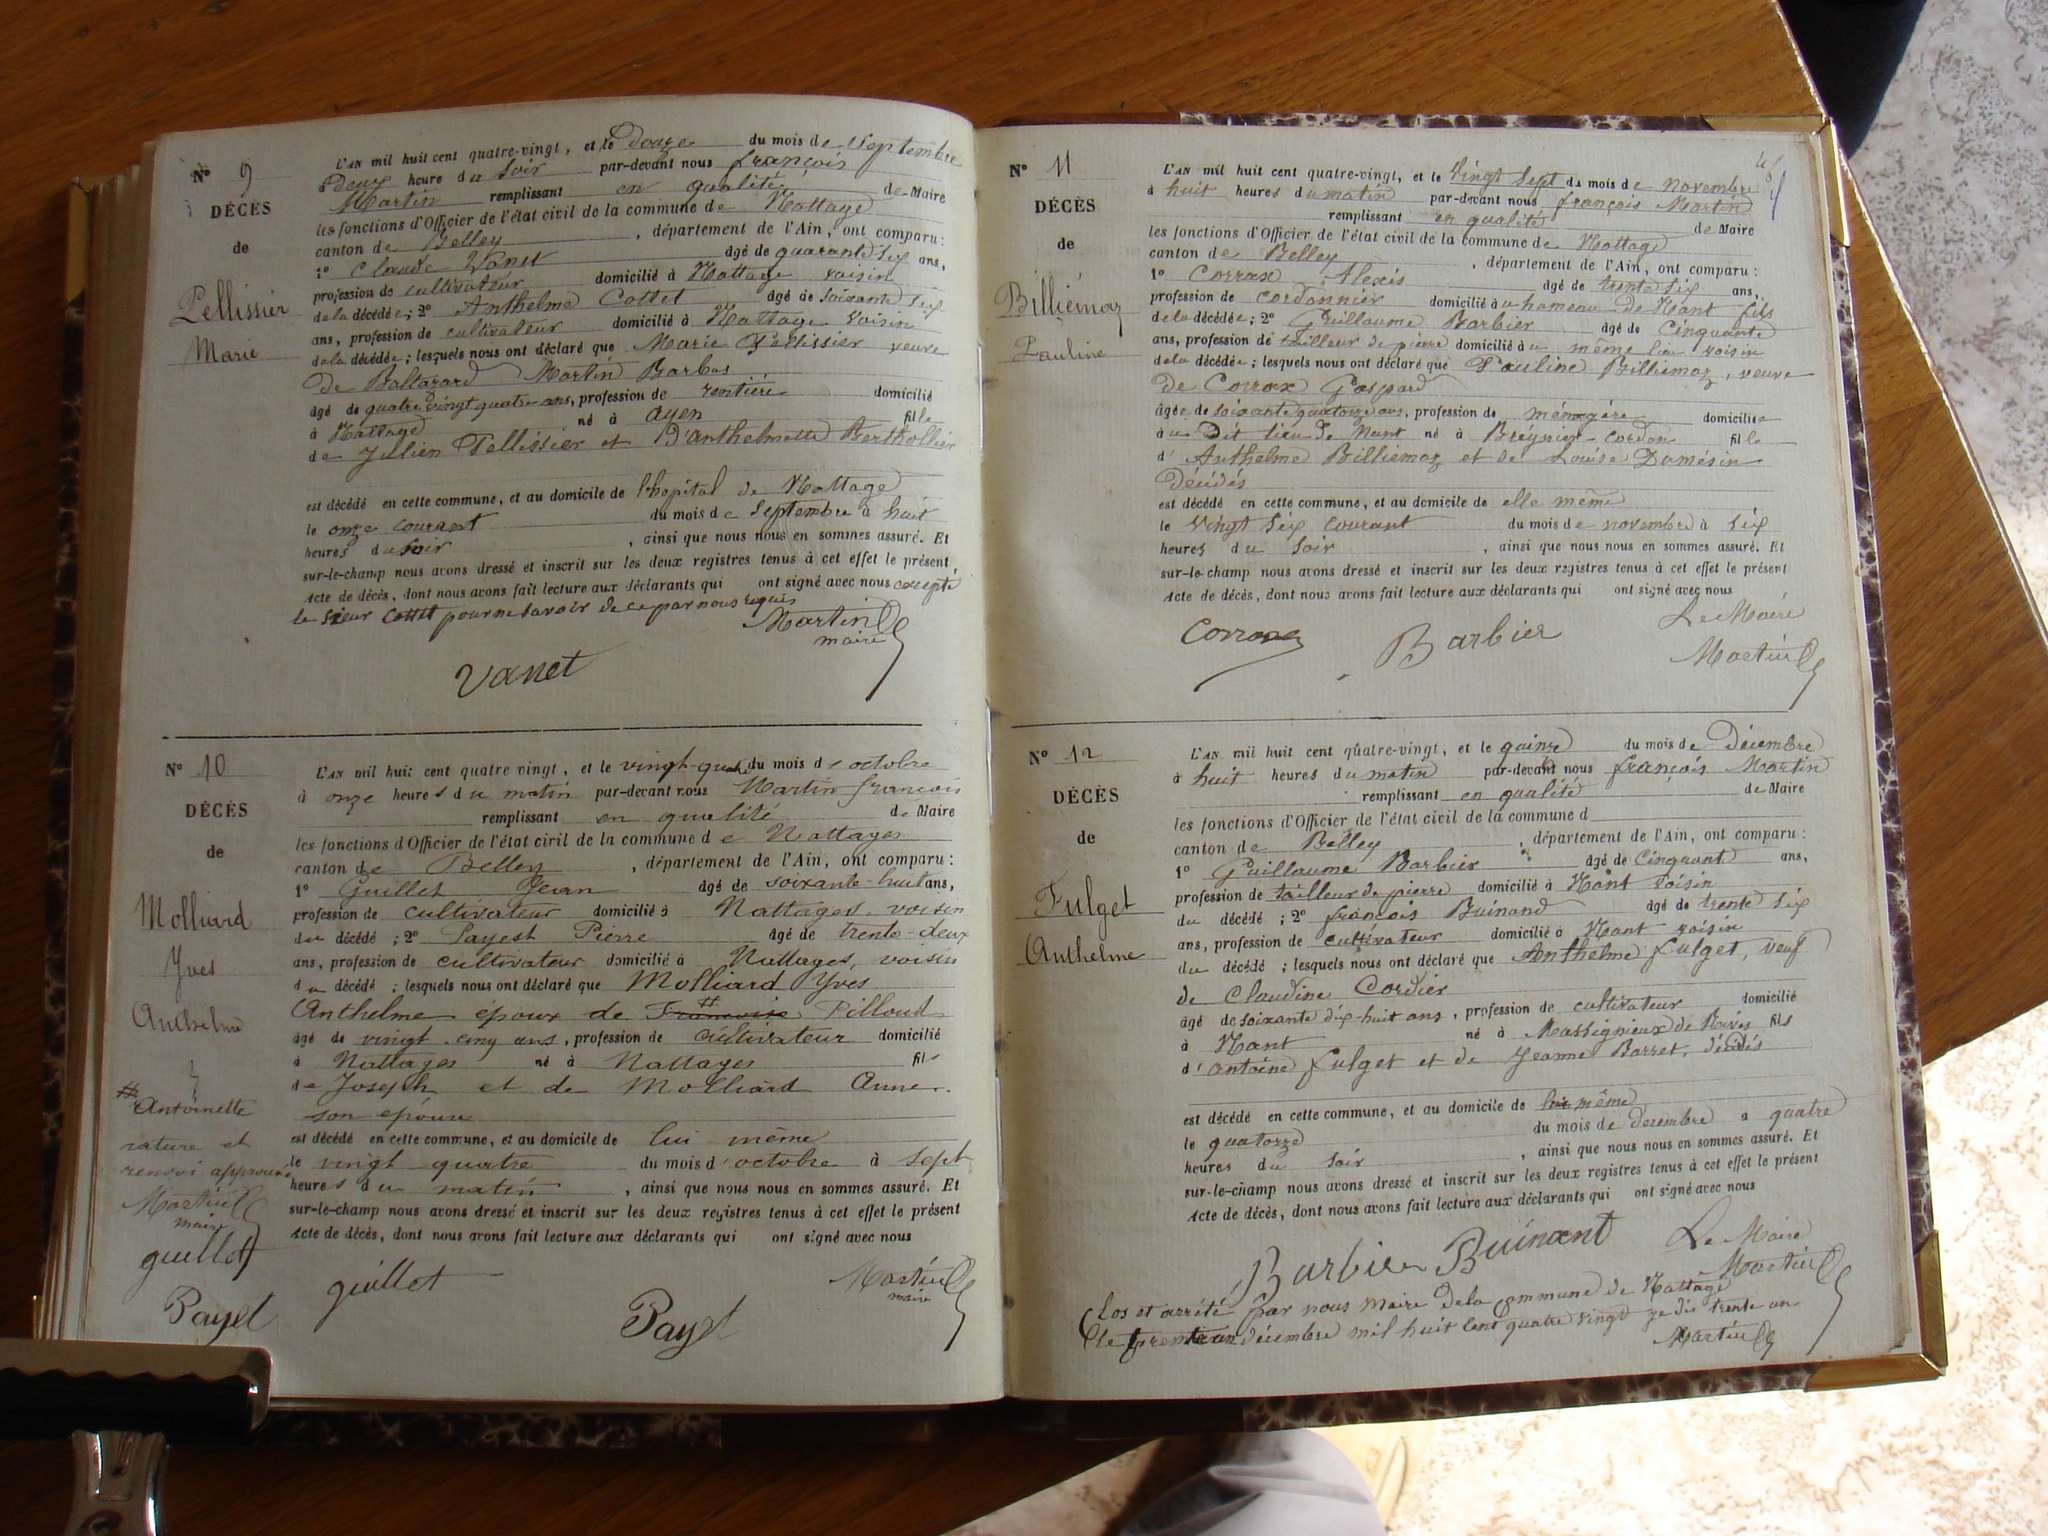 Nº 9
DÉCÈS
de
Pellissier
Marie
L'AN mil huit cent quatre-vingt, et le Douze du mois de Septembre
Deux heure du Soir par-devant nous françois
Martin remplissant en qualité de Maire
les fonctions d'Officier de l'état civil de la commune de Nattage
canton de Belley, département de l'Ain, ont comparu:
1º Claude Vanet âgé de quarante six ans,
profession de cultivateur domicilié à Nattage voisin
de la décédée; 2º Anthelme Cottet âgé de soixante six
ans, profession de cultivateur domicilié à Nattage voisin
de la décédée; lesquels nous ont déclaré que Marie Pellissier veuve
de Baltazard Martin Barbas
âgé de quatre vingt quatre ans, profession de rentière domicilié
à Nattage né à ayen fille
de Julien Pellissier et D'anthelmette Berthollier
est décédé en cette commune, et au domicile de l'hopital de Nattage
le onze courant du mois de Septembre à huit
heures du soir, ainsi que nous nous en sommes assuré. Et
sur-le-champ nous avons dressé et inscrit sur les deux registres tenus à cet effet le présent,
Acte de décès, dont nous avons fait lecture aux déclarants qui ont signé avec nous excepté
le sieur Cottet pour ne savoir de ce par nous requis
Martin
maire
Vanet
Nº 10
DÉCÈS
de
Molliard
Yves
Anthelme
L'AN mil huit cent quatre vingt, et le vingt-quatre du mois d'octobre
à onze heures du matin par-devant nous Martin françois
remplissant en qualité de Maire
les fonctions d'Officier de l'état civil de la commune de Nattages
canton de Belley, département de l'Ain, ont comparu:
1º Guillet Jean âgé de soixante-huit ans,
profession de cultivateur domicilié à Nattages, voisin
du décédé; 2º Payest Pierre âgé de trente-deux
ans, profession de cultivateur domicilié à Nattages, voisin
du décédé; lesquels nous ont déclaré que Molliard Yves
Anthelme époux de Francoise Pilloud
âgé de vingt-cinq ans, profession de cultivateur domicilié
à Nattages né à Nattages fils
de Joseph et de Molliard Anne
son épouse
est décédé en cette commune, et au domicile de lui même
le vingt quatre du mois d'octobre à sept
heures du matin, ainsi que nous nous en sommes assuré. Et
sur-le-champ nous avons dressé et inscrit sur les deux registres tenus à cet effet le présent
Acte de décès, dont nous avons fait lecture aux déclarants qui ont signé avec nous
# Antoinette
rature et
renvoi approuvé
Martin
maire
guillet
Payet
guillet
Payet
Martin
maire
Nº 11
DÉCÈS
de
Billiemaz
Pauline
L'AN mil huit cent quatre-vingt, et le Vingt Sept du mois de novembre
à huit heures du matin par-devant nous françois Martin
remplissant en qualité de Maire
les fonctions d'Officier de l'état civil de la commune de Nattage
canton de Belley, département de l'Ain, ont comparu:
1º Corrax Alexis âgé de trente six ans,
profession de cordonnier domicilié au hameau de Nant fils
de la décédée; 2º Guillaume Barbier âgé de Cinquante
ans, profession de tailleur de pierre domicilié au même lieu voisin
de la décédée; lesquels nous ont déclaré que Pauline Billiemaz, veuve
de Corrax Gaspard
âgée de soixante quatorze ans, profession de ménagère domiciliée
au Dit lieu de Nant né à Brégnier-Cordon fille
d'Anthelme Billiemaz et de Louise Dumésin
Décédés
est décédé en cette commune, et au domicile de elle même
le Vingt six courant du mois de novembre à six
heures du soir, ainsi que nous nous en sommes assuré. Et
sur-le-champ nous avons dressé et inscrit sur les deux registres tenus à cet effet le présent
Acte de décès, dont nous avons fait lecture aux déclarants qui ont signé avec nous
Le Maire
Corrax Barbier Martin
Nº 12
DÉCÈS
de
Fulget
Anthelme
L'AN mil huit cent quatre-vingt, et le quinze du mois de Décembre
à huit heures du matin par-devant nous françois Martin
remplissant en qualité de Maire
les fonctions d'Officier de l'état civil de la commune d
canton de Belley, département de l'Ain, ont comparu:
1º Guillaume Barbier âgé de Cinquant ans,
profession de tailleur de pierre domicilié à Nant voisin
du décédé; 2º françois Buinand âgé de trente six
ans, profession de cultivateur domicilié à Nant voisin
du décédé; lesquels nous ont déclaré que Anthelme Fulget, veuf
de Claudine Cordier
âgé de soixante dix-huit ans, profession de cultivateur domicilié
à Nant né à Massignieux de Rives fils
d'antoine Fulget et de Jeanne Barret, décédés
est décédé en cette commune, et au domicile de lui même
le quatorze du mois de decembre à quatre
heures du soir, ainsi que nous nous en sommes assuré. Et
sur-le-champ nous avons dressé et inscrit sur les deux registres tenus à cet effet le présent
Acte de décès, dont nous avons fait lecture aux déclarants qui ont signé avec nous
Le Maire
Barbier Buinant Martin
Clos et arrêté par nous maire de la Commune de Nattage
le trente un décembre mil huit cent quatre vingt trente un
Martin